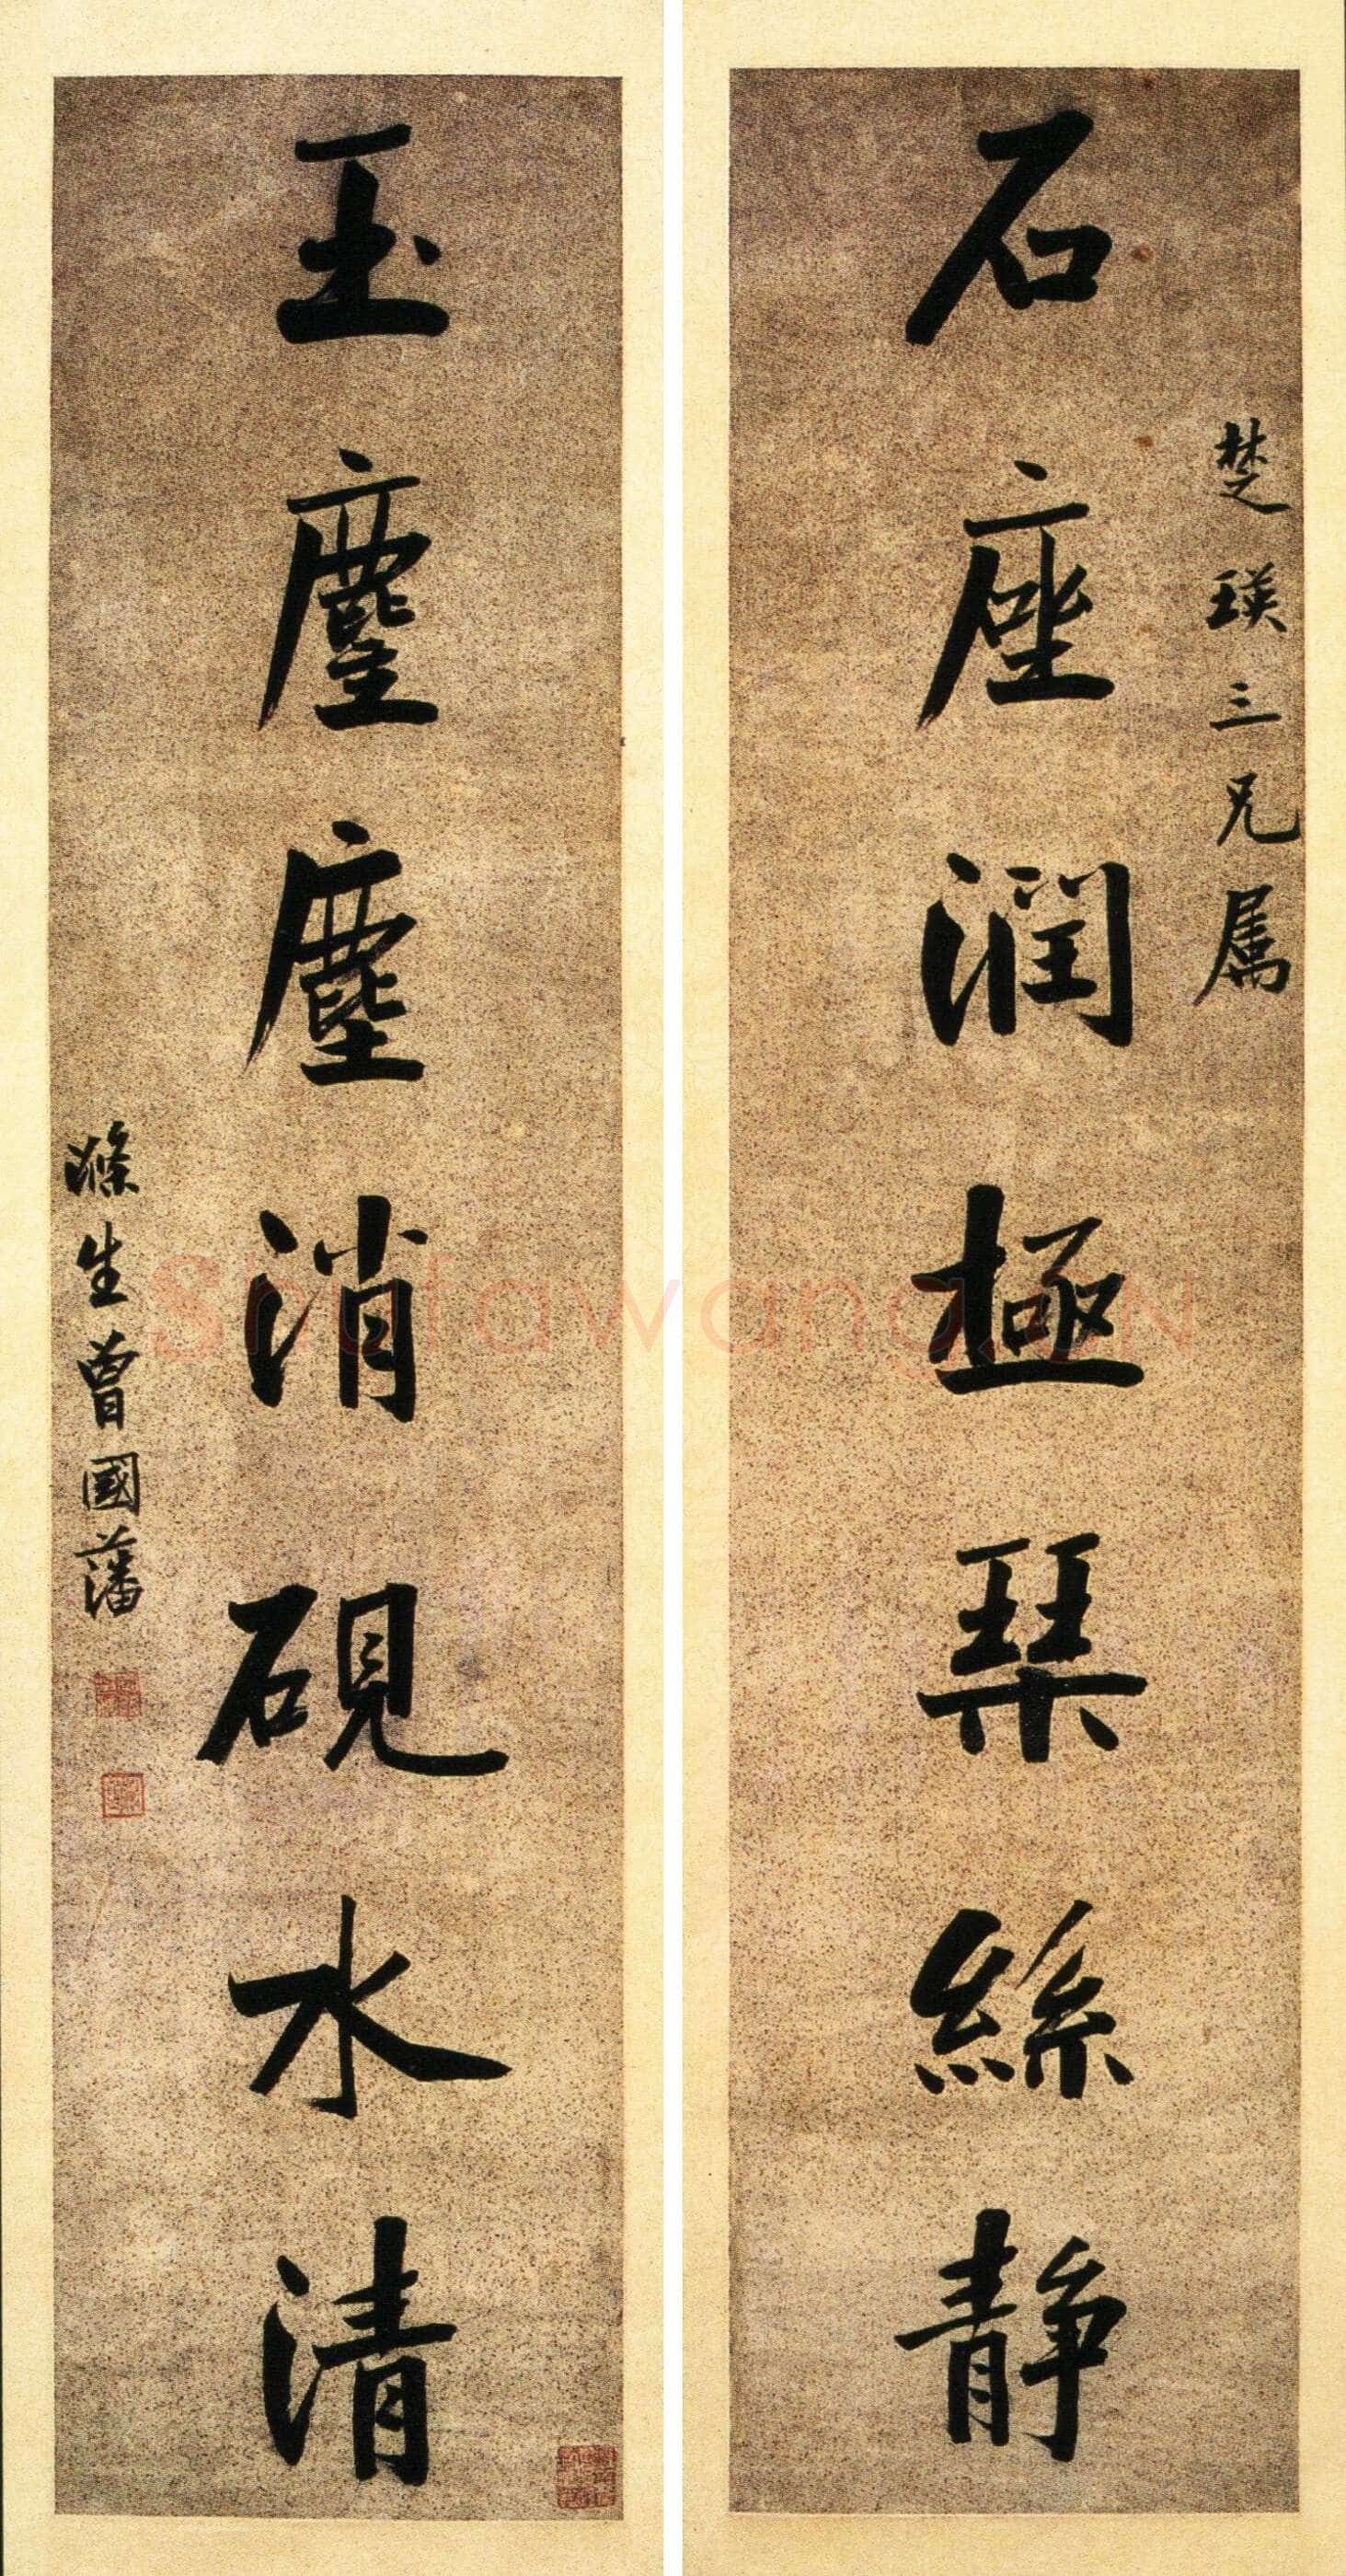 楚瑛三兄属
石座潤極琹絲靜
玉麈塵消硯水清
滌生曾國藩
Shufawang.CN